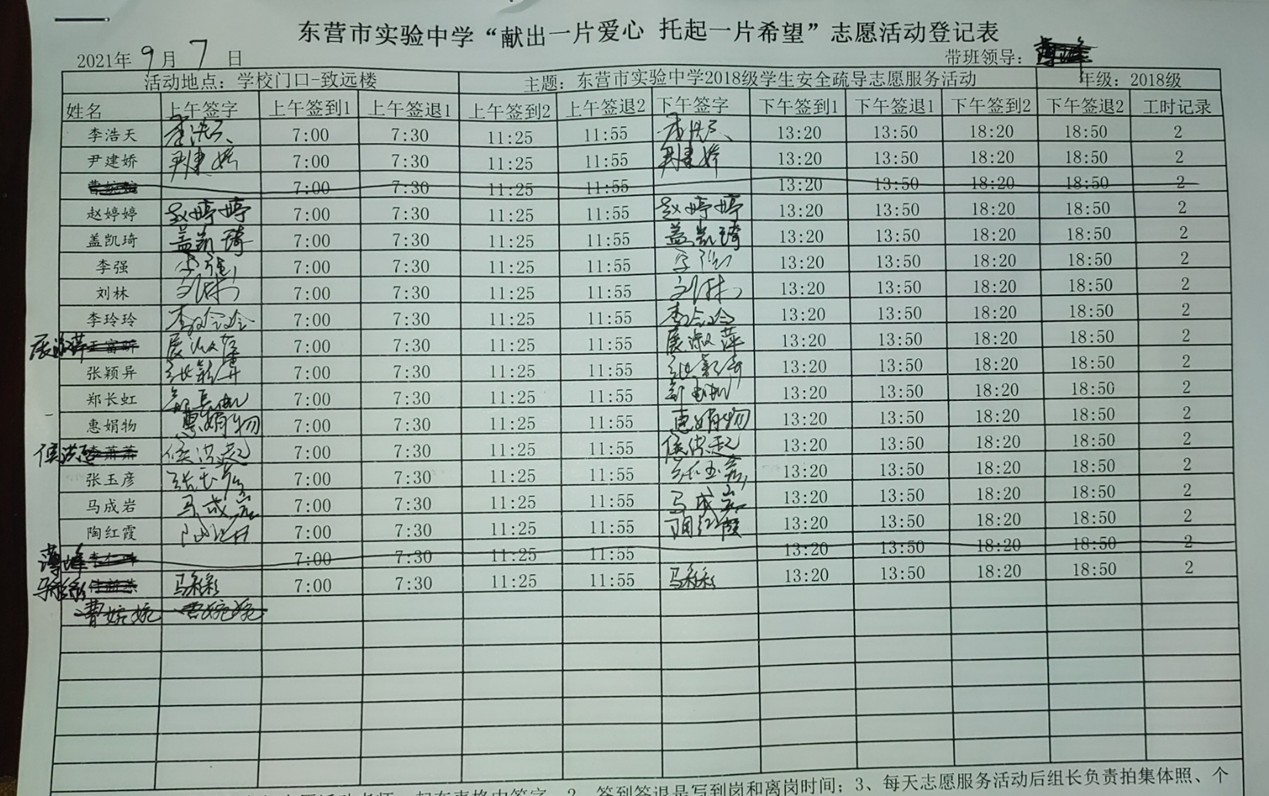 东营市实验中学“献出一片爱心 托起一片希望”志愿活动登记表
2021年 9 月 7 日 带班领导：
活动地点：学校门口-致远楼 主题：东营市实验中学2018级学生安全疏导志愿服务活动 年级：2018级
姓名 上午签字 上午签到1 上午签退1 上午签到2 上午签退2 下午签字 下午签到1 下午签退1 下午签到2 下午签退2 工时记录
李浩天 李浩天 7:00 7:30 11:25 11:55 李浩天 13:20 13:50 18:20 18:50 2
尹建娇 尹建娇 7:00 7:30 11:25 11:55 尹建娇 13:20 13:50 18:20 18:50 2
7:00 7:30 11:25 11:55 13:20 13:50 18:20 18:50 2
赵婷婷 赵婷婷 7:00 7:30 11:25 11:55 赵婷婷 13:20 13:50 18:20 18:50 2
盖凯琦 盖凯琦 7:00 7:30 11:25 11:55 盖凯琦 13:20 13:50 18:20 18:50 2
李强 李强 7:00 7:30 11:25 11:55 李强 13:20 13:50 18:20 18:50 2
刘林 刘林 7:00 7:30 11:25 11:55 刘林 13:20 13:50 18:20 18:50 2
李玲玲 李玲玲 7:00 7:30 11:25 11:55 李玲玲 13:20 13:50 18:20 18:50 2
展淑萍 展淑萍 7:00 7:30 11:25 11:55 展淑萍 13:20 13:50 18:20 18:50 2
张颖异 张颖异 7:00 7:30 11:25 11:55 张颖异 13:20 13:50 18:20 18:50 2
郑长虹 郑长虹 7:00 7:30 11:25 11:55 郑长虹 13:20 13:50 18:20 18:50 2
惠娟物 惠娟物 7:00 7:30 11:25 11:55 惠娟物 13:20 13:50 18:20 18:50 2
侯洪超 侯洪超 7:00 7:30 11:25 11:55 侯洪超 13:20 13:50 18:20 18:50 2
张玉彦 张玉彦 7:00 7:30 11:25 11:55 张玉彦 13:20 13:50 18:20 18:50 2
马成岩 马成岩 7:00 7:30 11:25 11:55 马成岩 13:20 13:50 18:20 18:50 2
陶红霞 陶红霞 7:00 7:30 11:25 11:55 陶红霞 13:20 13:50 18:20 18:50 2
7:00 7:30 11:25 11:55 13:20 13:50 18:20 18:50 2
马彩彩 马彩彩 7:00 7:30 11:25 11:55 马彩彩 13:20 13:50 18:20 18:50 2
曹婉婉 曹婉婉
签到签退是写到岗和离岗时间；3、每天志愿服务活动后组长负责拍集体照、个